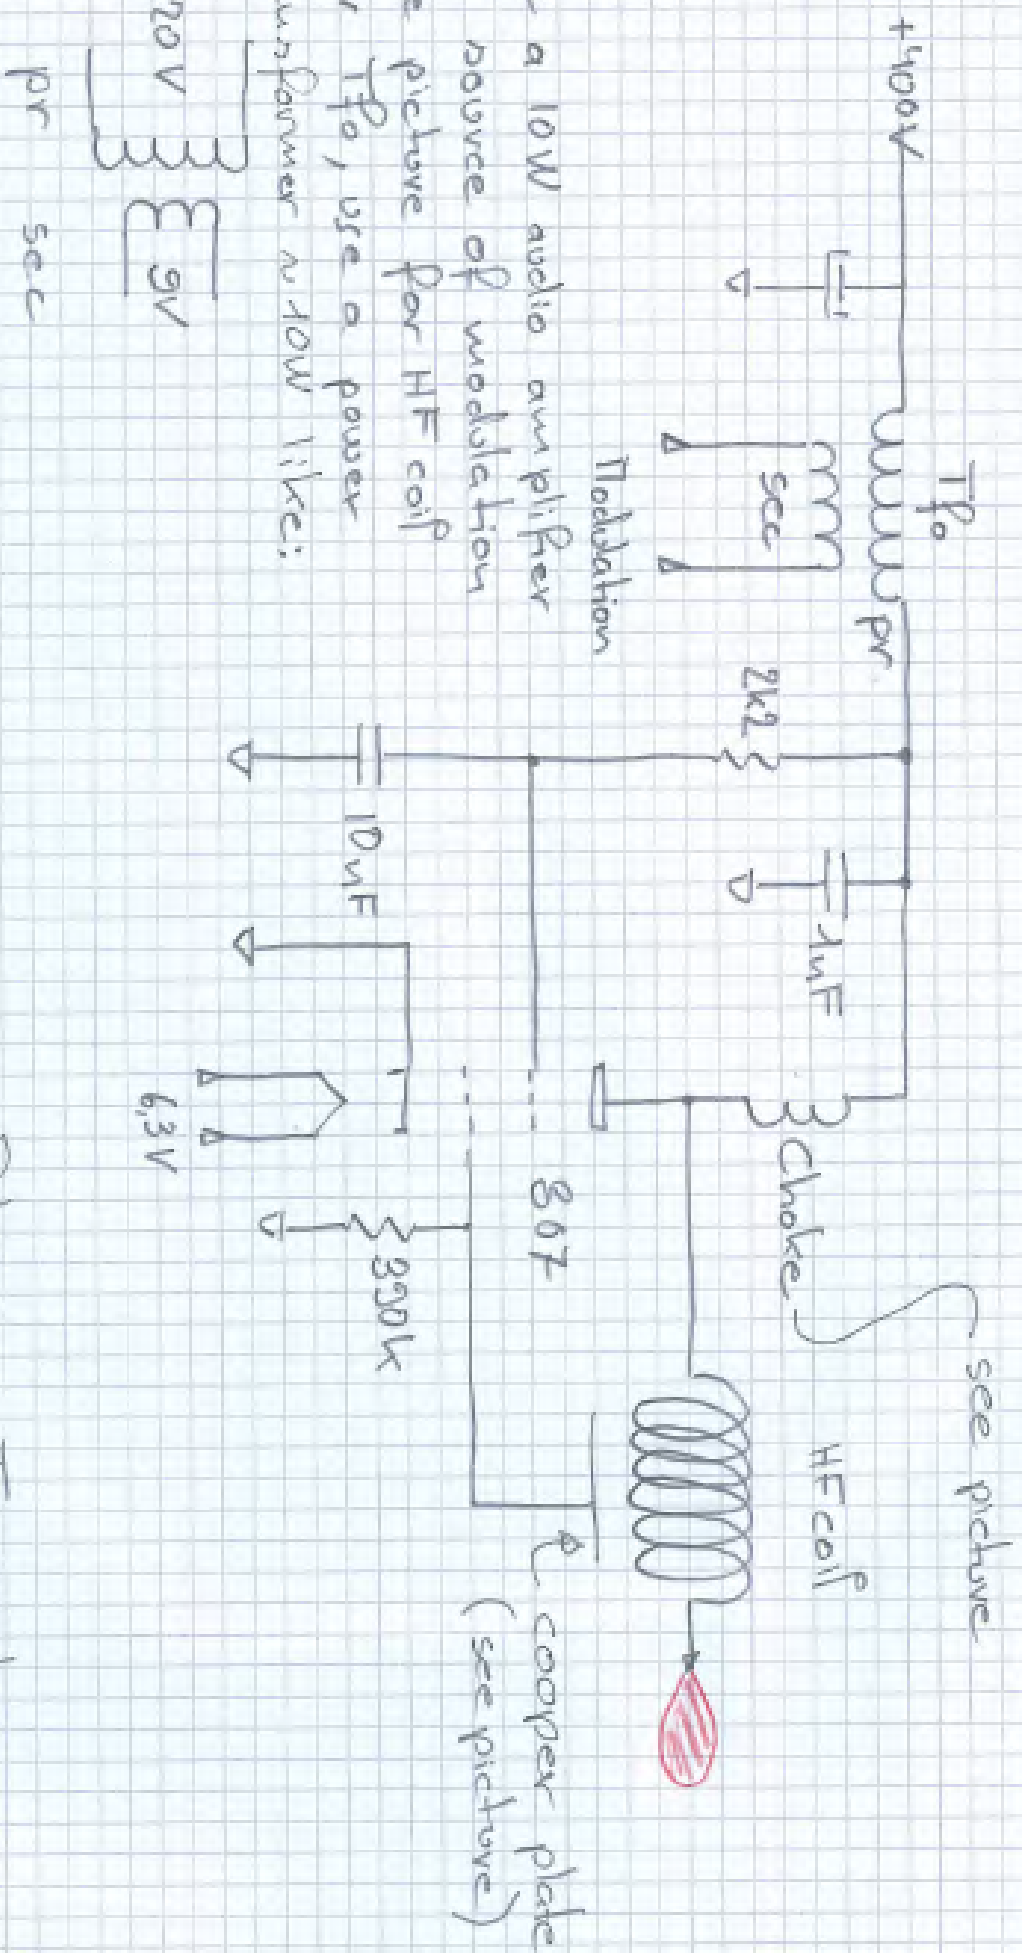 +400V
Tfo
pr
sec
Modulation
2k2
1nF
Choke
see picture
HF coil
10nF
6,3V
807
390k
cooper plate
(see picture)
a 10W audio amplifier
source of modulation
picture for HF coil
Tfo, use a power
~ 10W like:
20V
9V
pr
sec